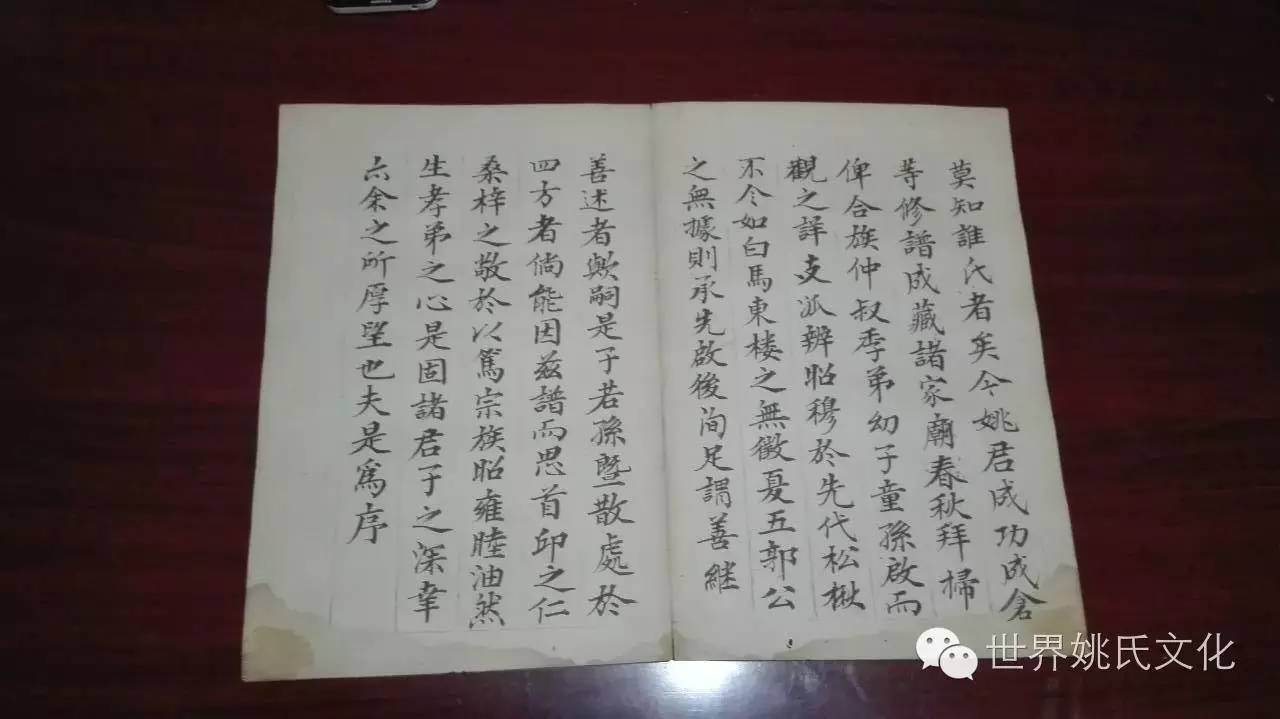 莫知誰氏者矣今姚君成功成倉
等修譜成藏諸家廟春秋拜掃
俾合族仲叔季弟幼子童孫啟而
觀之詳支派辨昭穆於先代松楸
不令如白馬東楼之無徵夏五郭公
之無據則承先啟後洵足謂善継
善述者歟嗣是子若孫暨散處於
四方者倘能因茲譜而思首邱之仁
桑梓之敬於以篤宗族昭雍睦油然
生孝弟之心是固諸君子之深幸
亦余之所厚望也夫是為序
世界姚氏文化